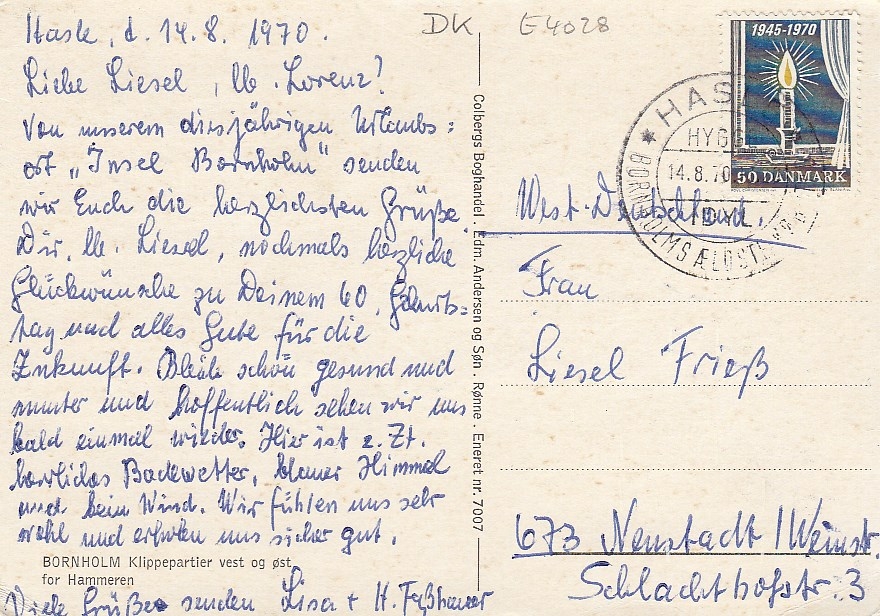 Hasle, d. 14.8. 1970.
Liebe Liesel, lb. Lorenz!
Von unserem diesjährigen Urlaubs=
ort „Insel Bornholm" senden
wir Euch die herzlichsten Grüße.
Dir, lb. Liesel, nochmals herzliche
Glückwünsche zu Deinem 60. Geburts=
tag und alles Gute für die
Zukunft. Bleib schön gesund und
munter und hoffentlich sehen wir uns
bald einmal wieder. Hier ist z. Zt.
herrliches Badewetter, blauer Himmel
und kein Wind. Wir fühlen uns sehr
wohl und erholen uns sicher gut.
Viele Grüße senden Lisa + H.
BORNHOLM Klippepartier vest og øst
for Hammeren
Colbergs Boghandel . Edm. Andersen og Søn . Rønne . Eneret nr. 7007
DK E4028
1945-1970
50 DANMARK
HASLE
HYGGE
14.8.70
IDYL
BORNHOLMS ÆLDSTE
West-Deutschland.
Frau
Liesel Frieß
673 Neustadt / Weinstr.
Schlachthofstr. 3